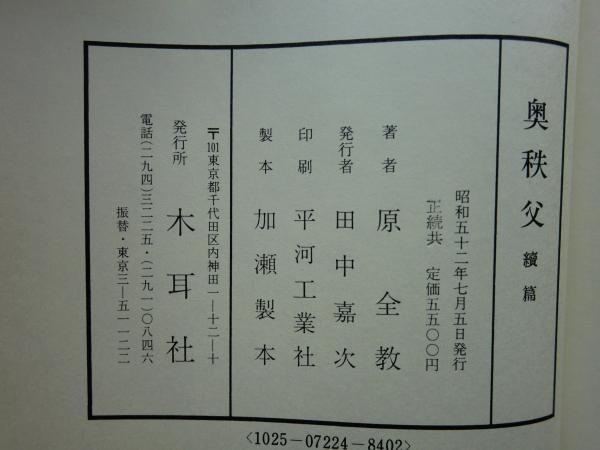 奥秩父 續篇
昭和五十二年七月五日発行
正続共 定価五五〇〇円
著者 原全教
発行者 田中嘉次
印刷 平河工業社
製本 加瀬製本
〒101東京都千代田区内神田一—十二—十
発行所 木耳社
電話(二九四)三二二五・(二九一)〇八四六
振替・東京三—五一一二二
<1025-07224-8402>